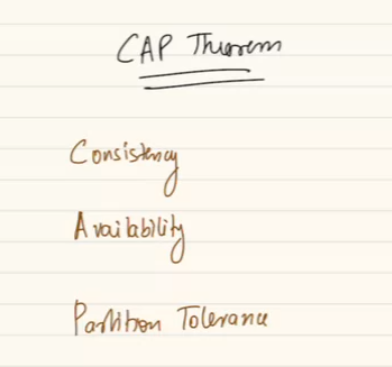 CAP Theorem
Consistency
Availability
Partition Tolerance